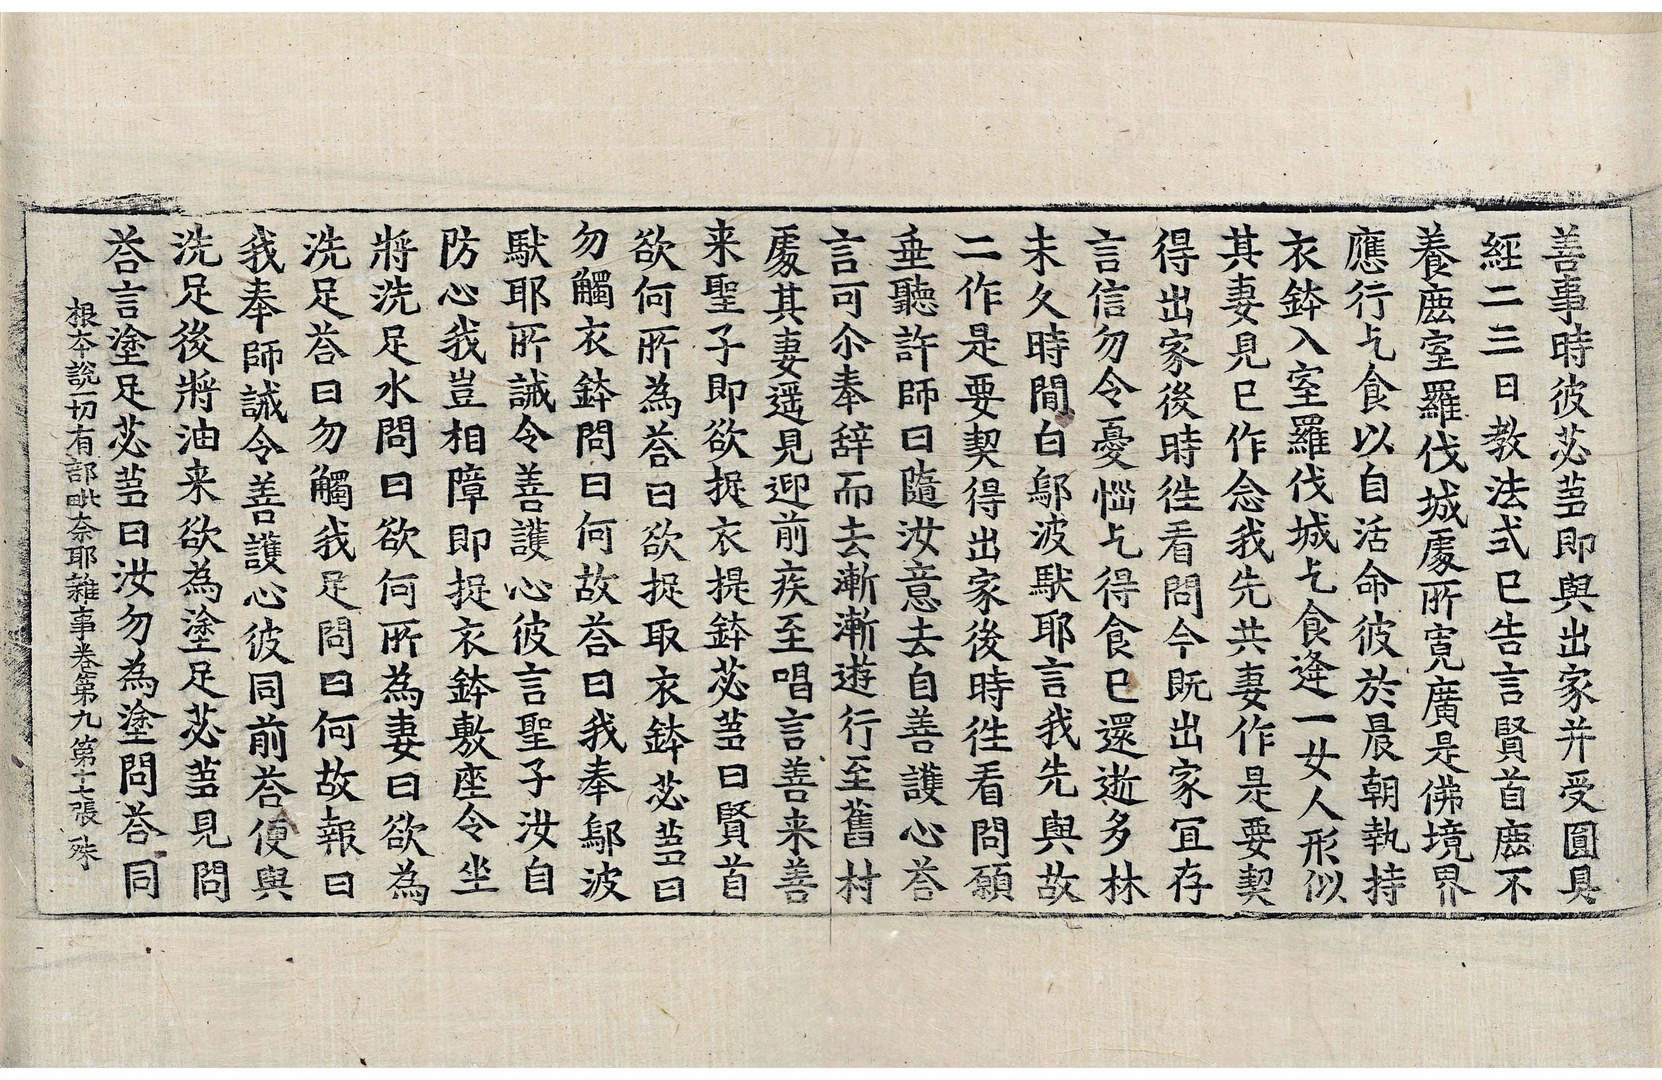 善事時彼苾蒭即與出家并受圓具
經二三日教法式已告言賢首鹿不
養鹿室羅伐城處所寛廣是佛境界
應行乞食以自活命彼於晨朝執持
衣鉢入室羅伐城乞食逢一女人形似
其妻見已作念我先共妻作是要契
得出家後時徃看問今既出家冝存
言信勿令憂惱乞得食已還逝多林
未久時間白鄔波馱耶言我先與故
二作是要契得出家後時徃看問願
垂聽許師曰隨汝意去自善護心荅
言可尒奉辞而去漸漸遊行至舊村
處其妻遥見迎前疾至唱言善来善
来聖子即欲捉衣提鉢苾蒭曰賢首
欲何所為荅曰欲捉取衣鉢苾蒭曰
勿觸衣鉢問曰何故荅曰我奉鄔波
馱耶所誡令善護心彼言聖子汝自
防心我豈相障即捉衣鉢敷座令坐
將洗足水問曰欲何所為妻曰欲為
洗足荅曰勿觸我足問曰何故報曰
我奉師誡令善護心彼同前荅便與
洗足後將油来欲為塗足苾蒭見問
荅言塗足苾蒭曰汝勿為塗問荅同
根夲說一切有部毗奈耶雜事卷第九 第十七張 殊